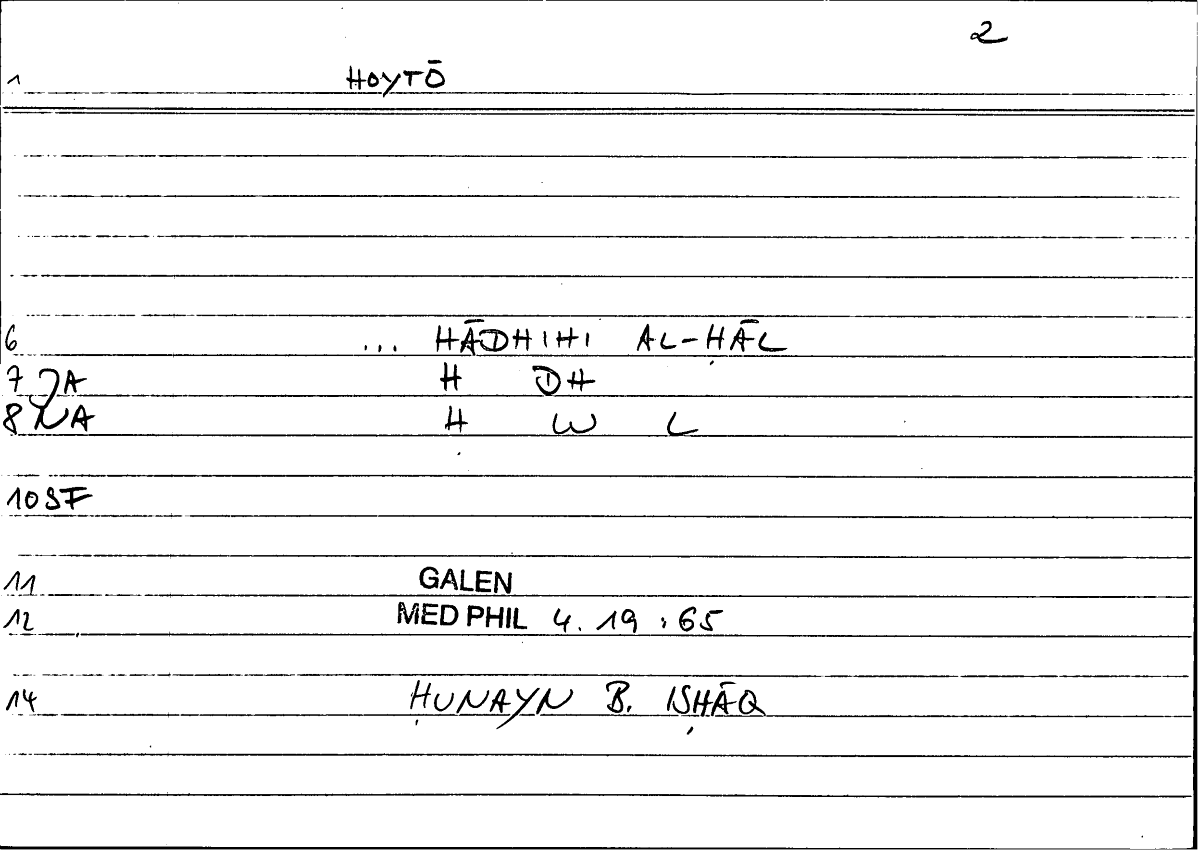 2
1 HOYTŌ
6 ... HĀDHIHI AL-ḤĀL
7 JA H DH
8 NA Ḥ W L
10 SF
11 GALEN
12 MED PHIL 4. 19 : 65
14 ḤUNAYN B. ISḤĀQ